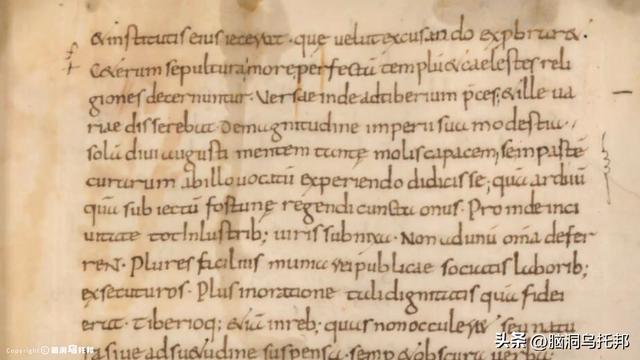 & institutis eius iecerat · que velut excusando exprobrar& ·
C&erum sepultura more perfectū templū & caelestes reli
giones decernuntur · Versae inde ad tiberium pces; & ille va
riae disserebat De magnitudine imperii sua modestia ·
solā divi augusti mentem tantę molis capacem, se in partē
curarum ab illo vocatū experiendo didicisse; quā arduū
quā subiectū fortunę regendi cuncta onus · Proinde in ci
vitate tot inlustrib; viris subnixa · Non ad unū om̄a defer
reN · Plures facilius munia rei publicae sociatis laborib;
exsecuturos · Plus in oratione tali dignitatis quā fidei
erat · Tiberioq; &iā in reb; quas non occuler& seu natu
ra sive adsu&udine suspensa semp & obscura verba
Copyright © 脑洞乌托邦
头条 @脑洞乌托邦